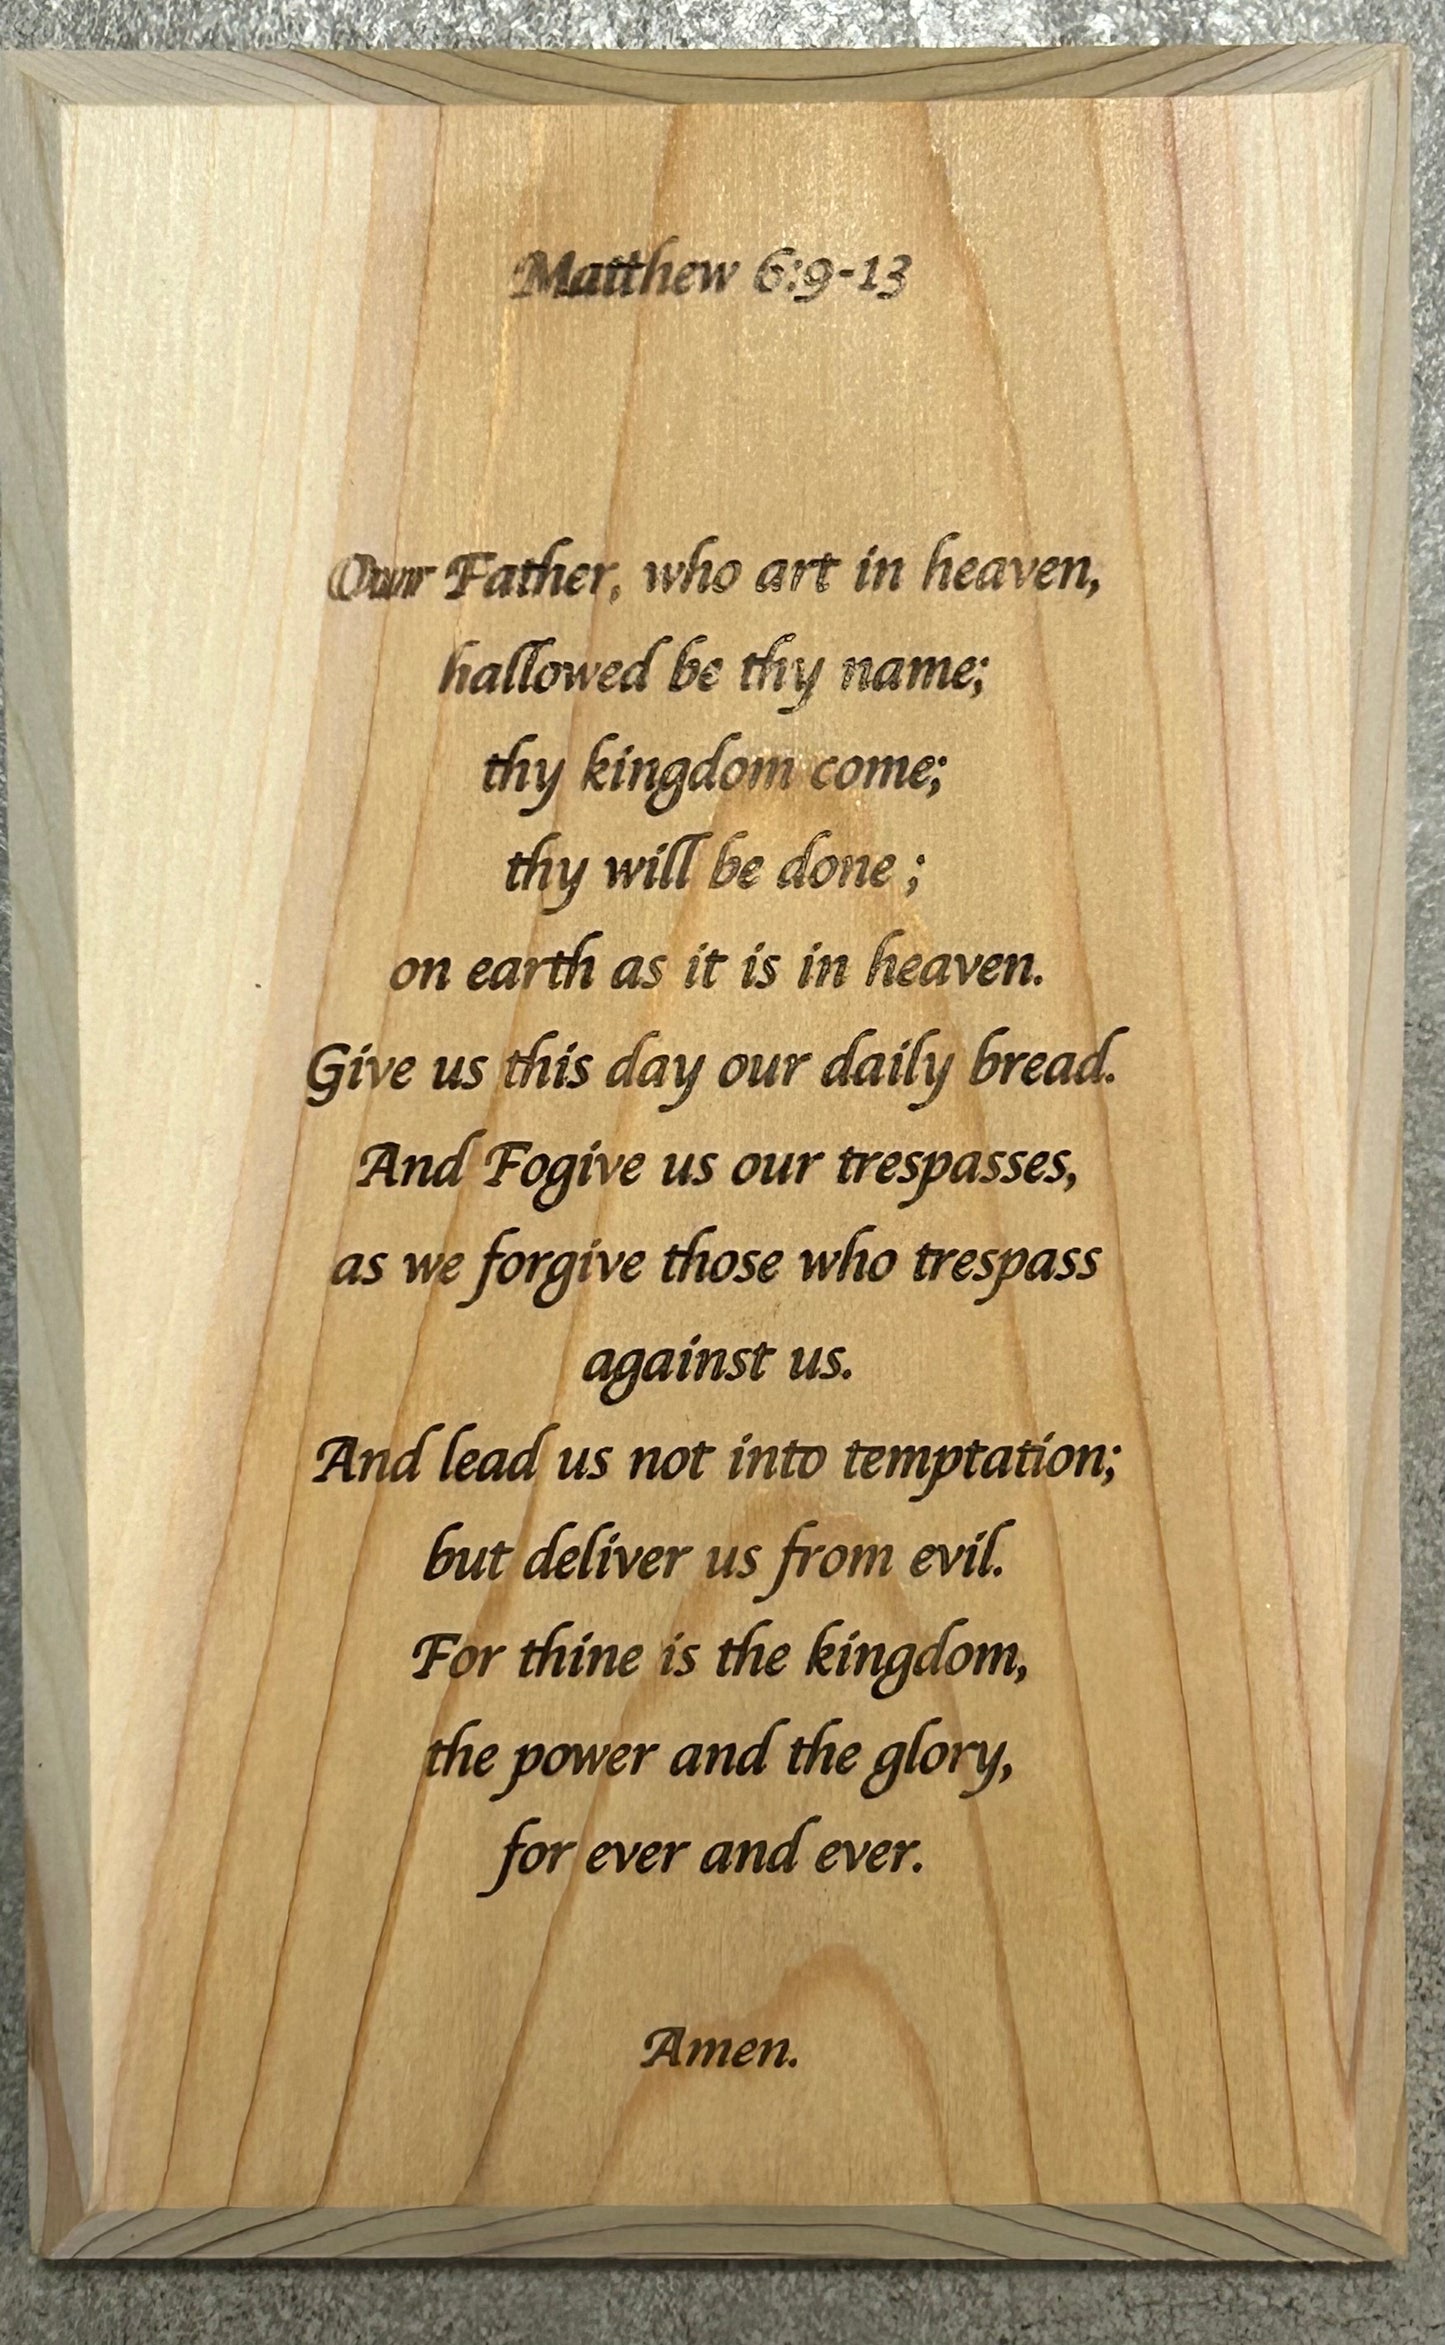 Matthew 6:9-13
Our Father, who art in heaven,
hallowed be thy name;
thy kingdom come;
thy will be done ;
on earth as it is in heaven.
Give us this day our daily bread.
And Fogive us our trespasses,
as we forgive those who trespass
against us.
And lead us not into temptation;
but deliver us from evil.
For thine is the kingdom,
the power and the glory,
for ever and ever.
Amen.